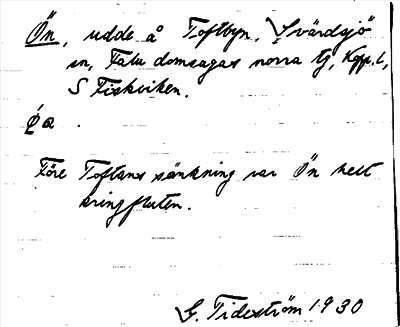 Ön, udde å Toftbyn, Svärdsjö
sn, Falu domsagas norra tg, Kopp. l,
S Fiskviken.
Öa
Före Toftans sänkning var Ön helt
kringfluten.
G. Tideström 1930